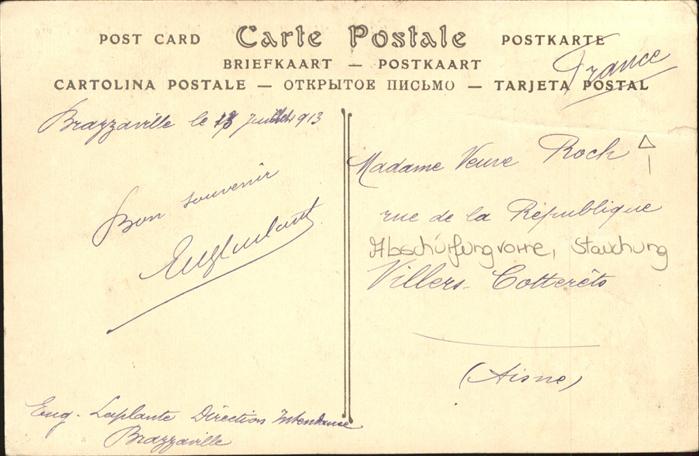 POST CARD Carte Postale POSTKARTE
BRIEFKAART — POSTKAART
CARTOLINA POSTALE — ОТКРЫТОЕ ПИСЬМО — TARJETA POSTAL
France
Brazzaville le 13 Juillet 1913
Bon souvenir
Madame Veuve Roch
rue de la République
Abschürfung vorne, Stauchung
Villers-Cotterêts
(Aisne)
Eug. Laplante Direction Intendance
Brazzaville